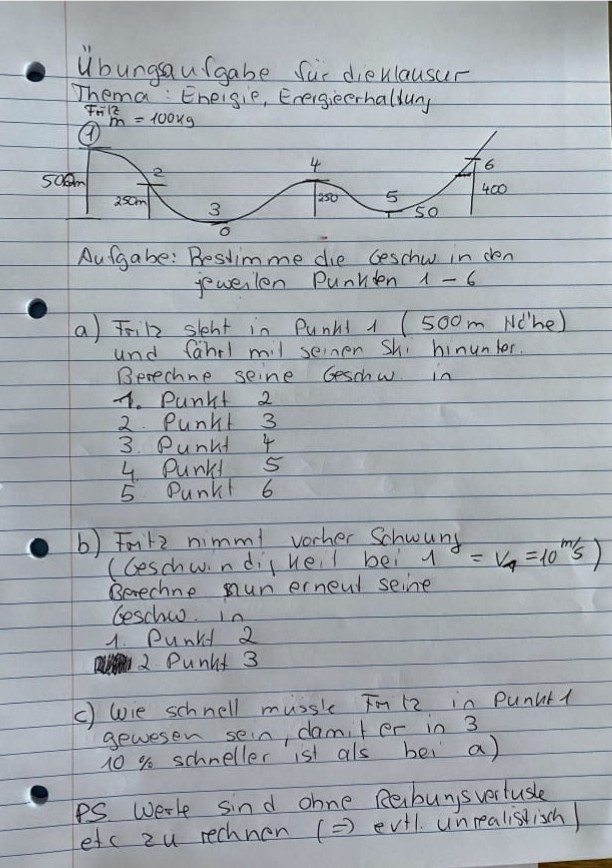 Übungsaufgabe für die Klausur
Thema: Energie, Energieerhaltung
Fritz
m = 100kg
1
500m
2
250m
3
0
4
250
5
50
6
400
Aufgabe: Bestimme die Geschw. in den
jeweilen Punkten 1 – 6
a) Fritz steht in Punkt 1 (500m Höhe)
und fährt mit seinen Ski hinunter.
Berechne seine Geschw. in
1. Punkt 2
2. Punkt 3
3. Punkt 4
4. Punkt 5
5. Punkt 6
b) Fritz nimmt vorher Schwung
(Geschwindigkeit bei 1 = v₁ = 10 m/s)
Berechne nun erneut seine
Geschw. in
1. Punkt 2
2. Punkt 3
c) Wie schnell müsste Fritz in Punkt 1
gewesen sein, damit er in 3
10 % schneller ist als bei a)
PS Werte sind ohne Reibungsverluste
etc zu rechnen (=> evtl. unrealistisch)